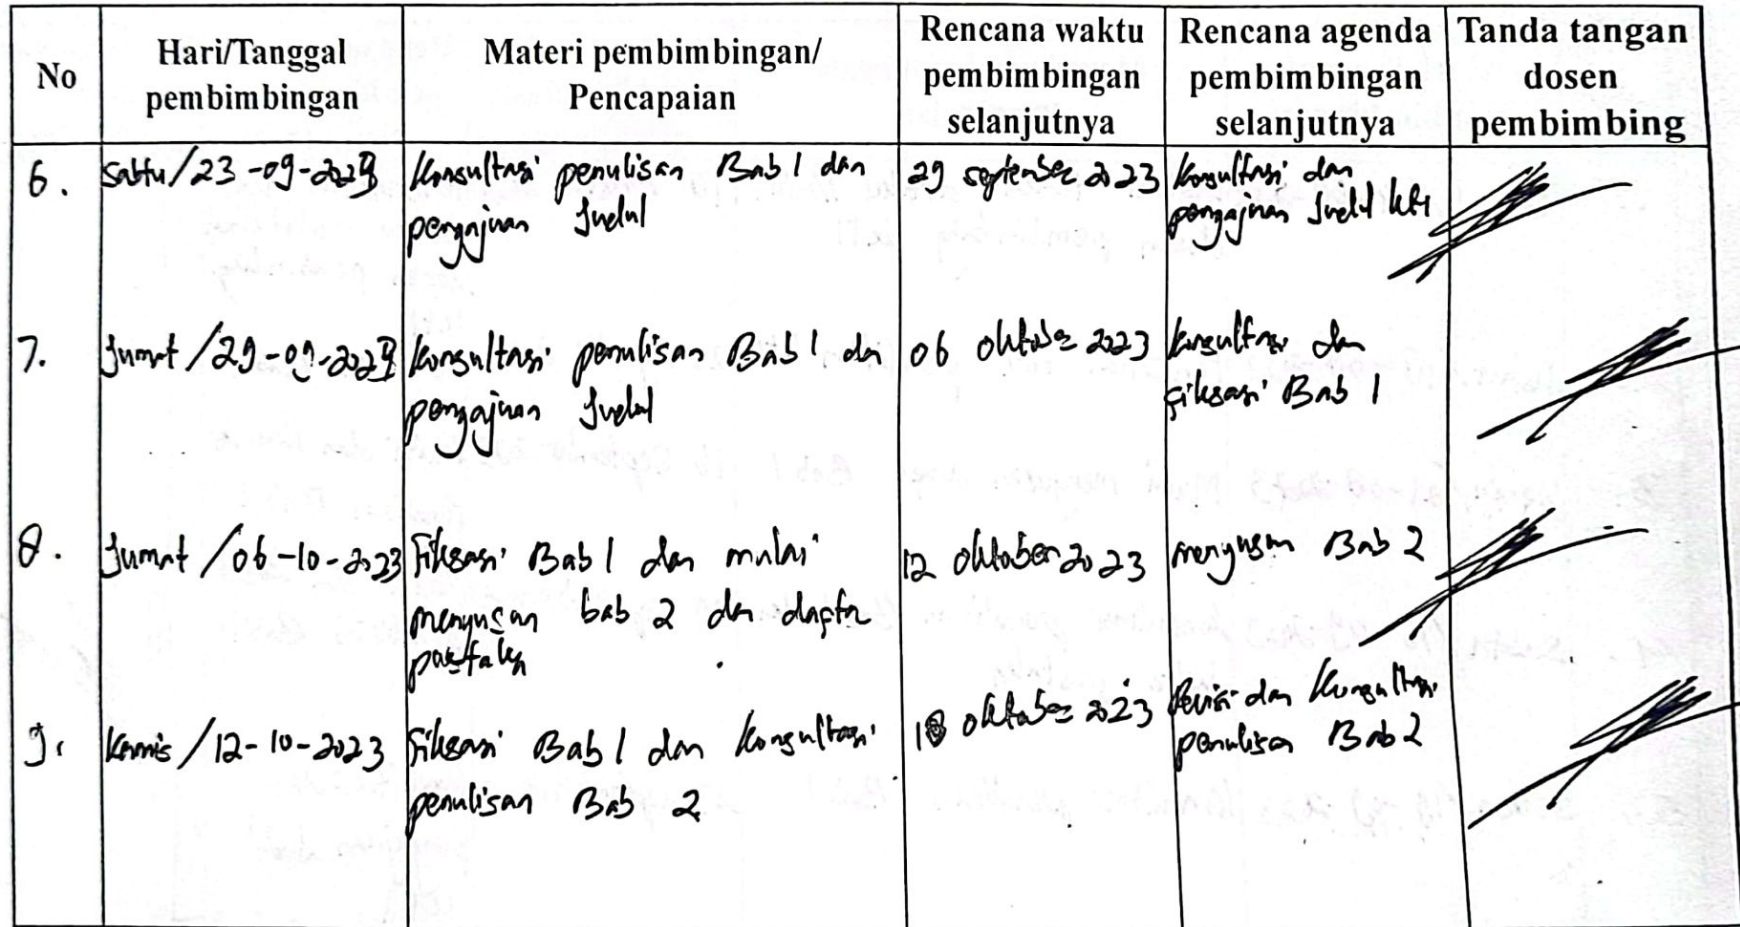 No
Hari/Tanggal
pembimbingan
Materi pembimbingan/
Pencapaian
Rencana waktu
pembimbingan
selanjutnya
Rencana agenda
pembimbingan
selanjutnya
Tanda tangan
dosen
pembimbing
6.
Sabtu/23-09-2023
Konsultasi penulisan Bab 1 dan
pengajuan Judul
29 september 2023
Konsultasi dan
pengajuan Judul kti
7.
Jumat/29-09-2023
Konsultasi penulisan Bab 1 dan
pengajuan Judul
06 oktober 2023
Konsultasi dan
fiksasi Bab 1
8.
Jumat/06-10-2023
Fiksasi Bab 1 dan mulai
menyusun bab 2 dan daftar
pustaka
12 oktober 2023
menyusun Bab 2
9.
Kamis/12-10-2023
Fiksasi Bab 1 dan konsultasi
penulisan Bab 2
18 oktober 2023
Revisi dan Konsultasi
penulisan Bab 2